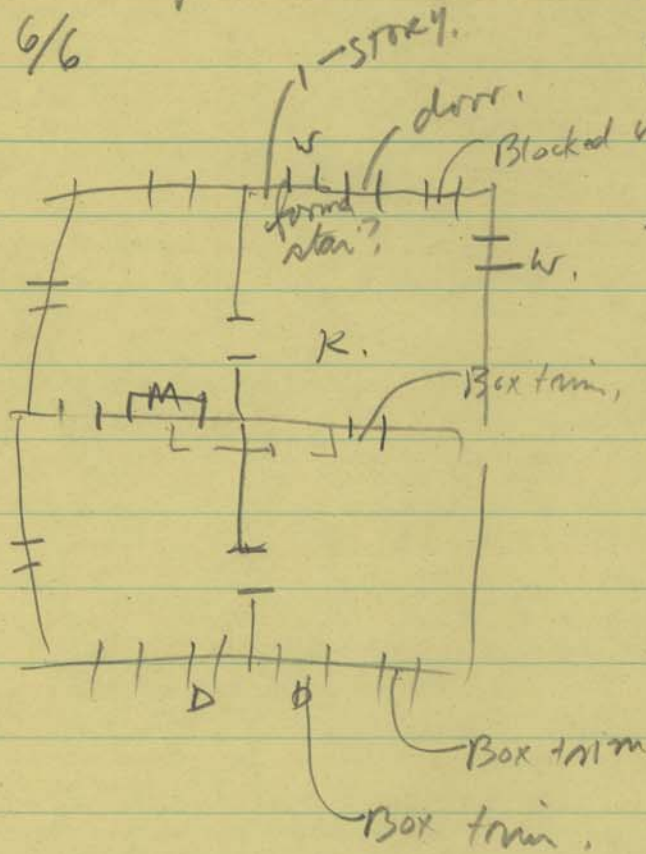 6/6
1-story.
door.
W
Blocked
stair?
W.
K.
Box trim.
M
D D
Box trim
Box trim.